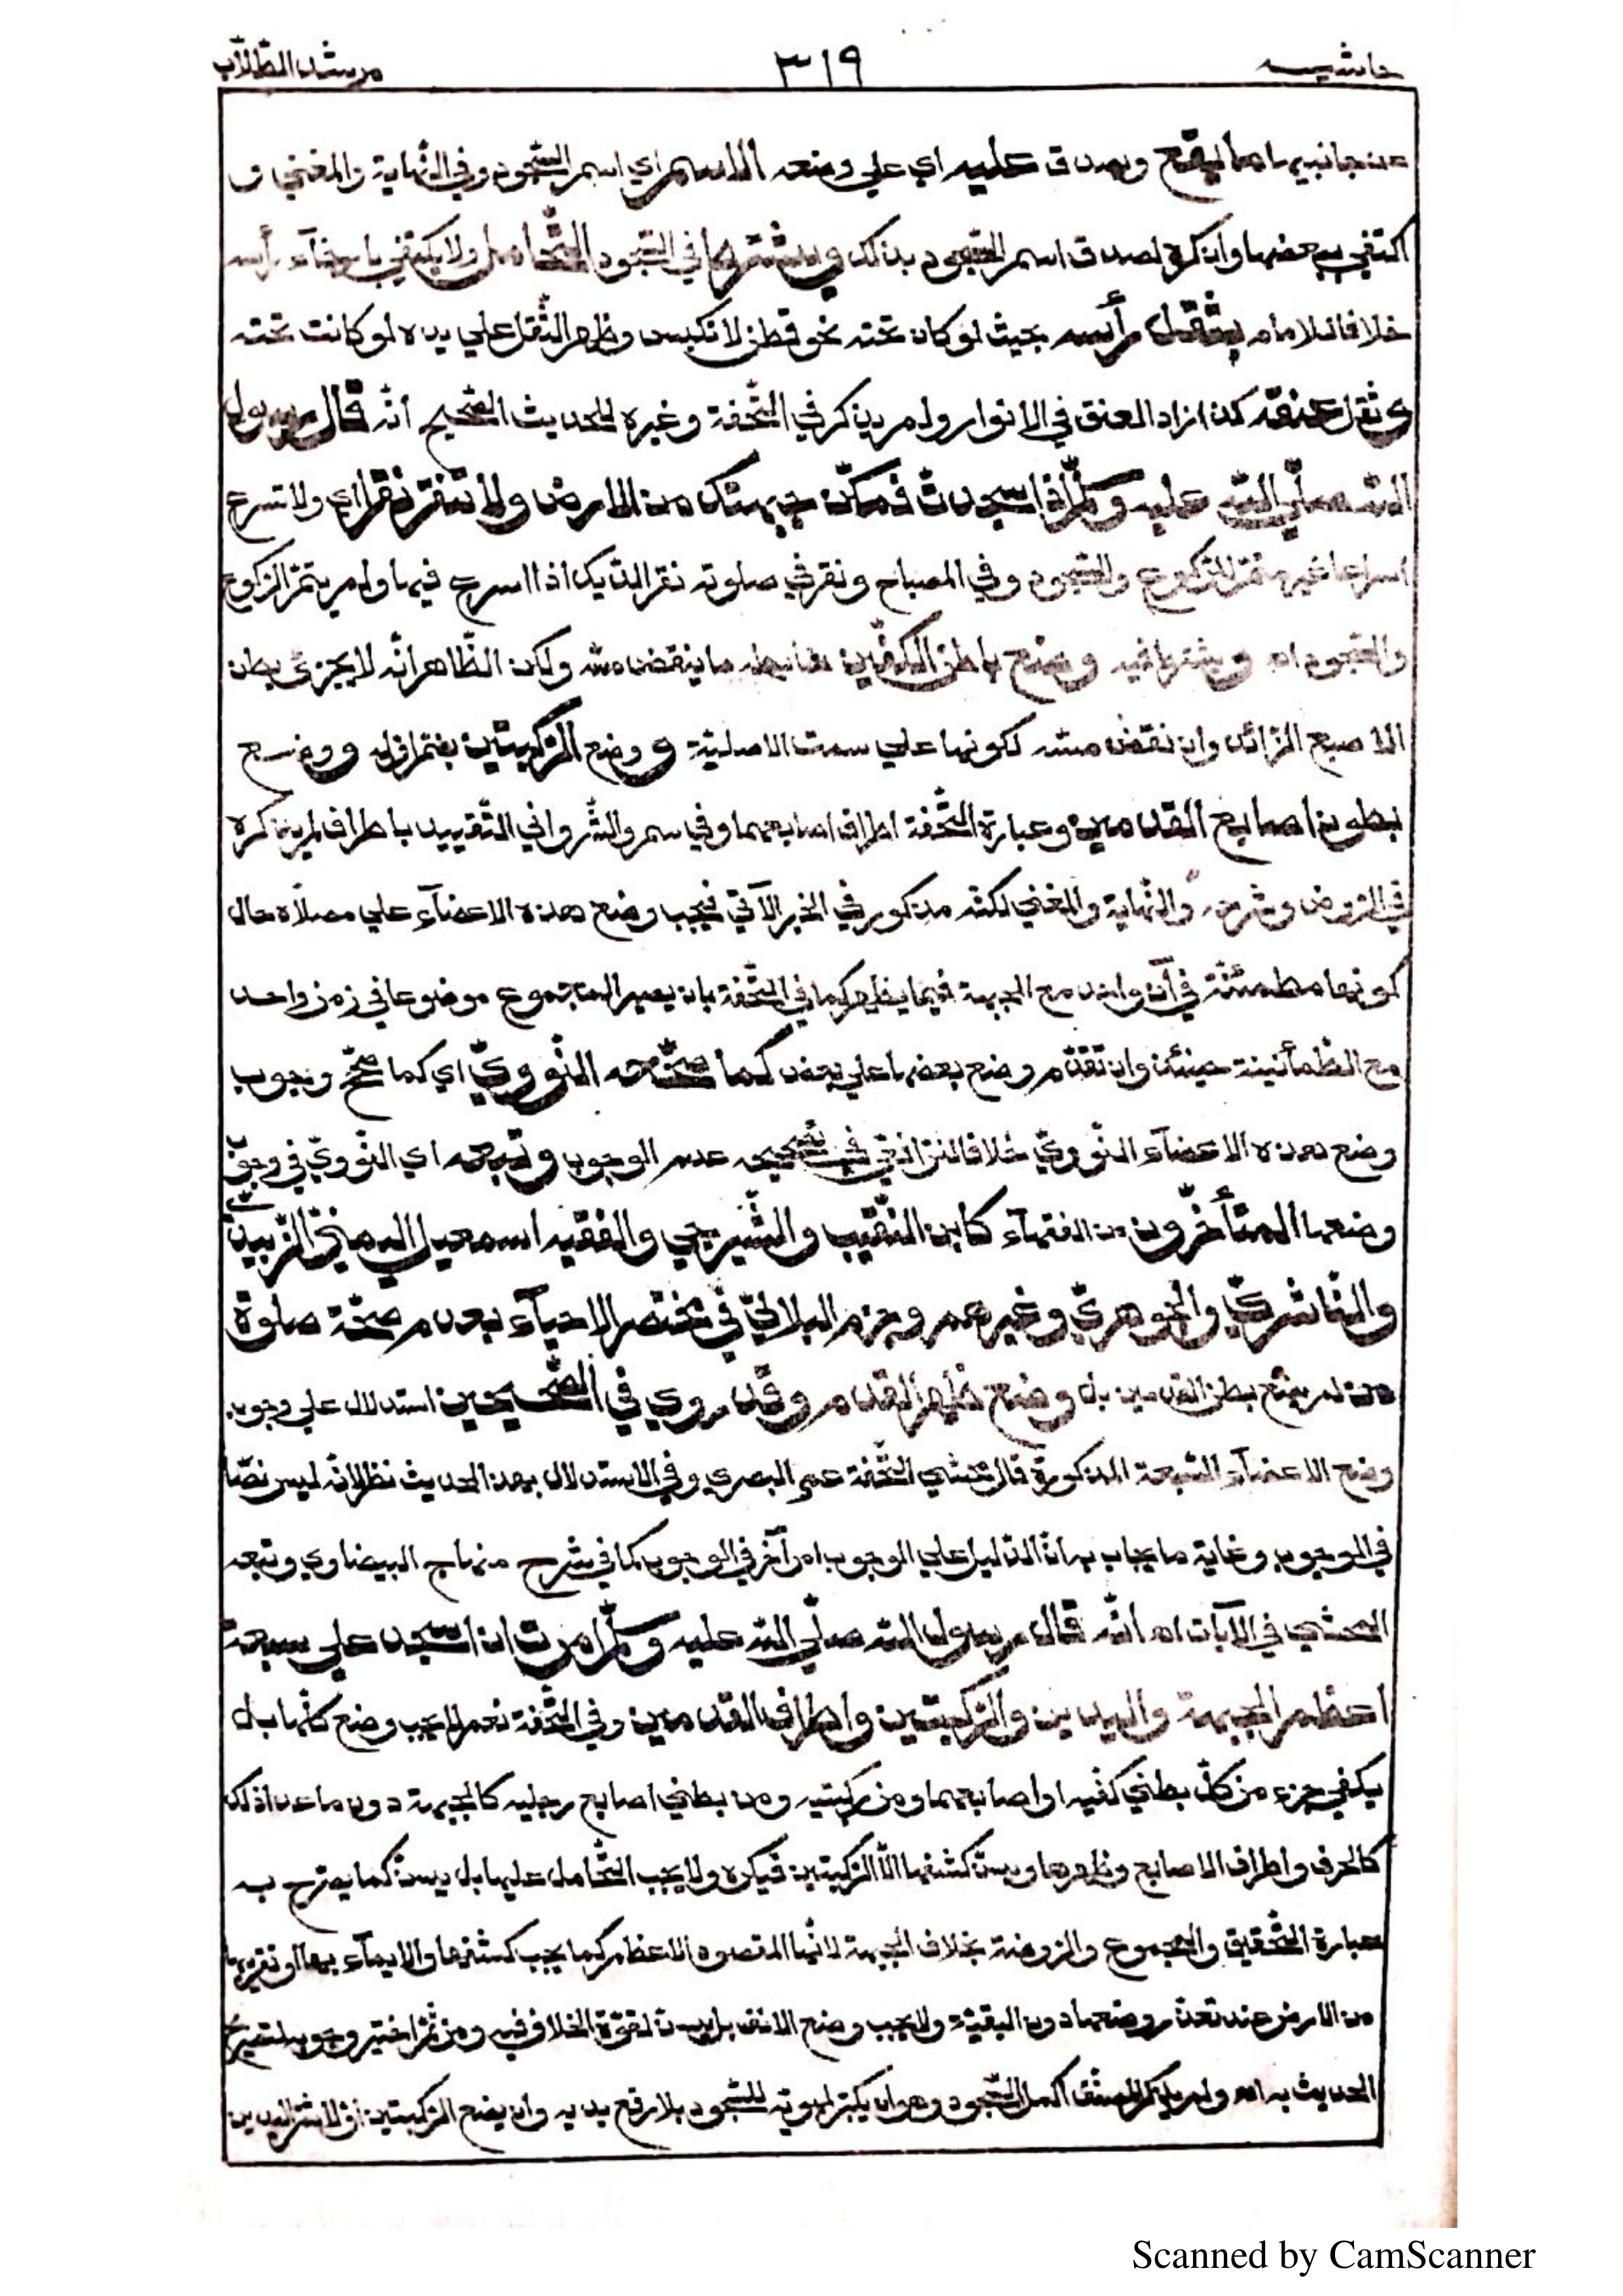 حاشيه ٣١٩ مرشد الطّلّاب
عن جانبيهما مما يقع ويصدق عليه اي على وضعه الاسم اي اسم السّجود وفي النّهاية والمغني و
اكتفي ببعضها وان كره لصدق اسم السّجود بذلك ويشترط في السّجود التّحامل ولا يكتفي بارخآء رأسه
خلافا للامام بثقل رأسه بحيث لو كان تحته نحو قطن لانكبس وظهر الثّقل علي يده لو كانت تحته
وثقل عنقه كذا زاد العنق في الانوار ولم يذكر في التّحفة وغيره للحديث الصّحيح انّه قال رسول
اللّه صلّي اللّه عليه وسلّم اذا سجدت فمكّن جبهتك من الارض ولا تنقر نقرا اي ولا تسرع
اسراعا غير متمّ للرّكوع والسّجود وفي المصباح ونقر في صلوته نقر الدّيك اذا اسرع فيها ولم يتمّ الرّكوع
والسّجود اه ويشترط فيه وضع باطن الكفّين ضابطه ما ينقض مسّه ولكن الظّاهر انّه لا يجزئ بطن
الاصبع الزّائد وان نقض مسّه لكونها علي سمت الاصليّة ووضع الرّكبتين بضمّ اوّله ووضع
بطون اصابع القدمين وعبارة التّحفة اطراف اصابعهما وفي سم والشّرواني التّقييد باطراف لم يذكره
في الرّوض وشرحه والنّهاية والمغني لكنّه مذكور في الخبر الآتي فيجب وضع هذه الاعضآء علي مصلّاه حال
كونها مطمئنّة في آن واحد مع الجبهة فيما يظهر كما في التّحفة بان يصير المجموع موضوعا في زمن واحد
مع الطّمأنينة حينئذ وان تقدّم وضع بعضها علي بعض كما صحّحه النّوويّ اي كما صحّح وجوب
وضع هذه الاعضآء النّوويّ خلافا للرّافعيّ في تصحيحه عدم الوجوب وتبعه اي النّوويّ في وجوب
وضعها المتأخّرون من الفقهآء كابن النّقيب والشّيرجي والفقيه اسمعيل اليمنيّ الزّبيديّ
والنّاشريّ والجوهريّ وغيرهم وجزم البلاليّ في مختصر الاحيآء بعدم صحّة صلوة
من لم يضع بطن القدمين بل وضع ظهر القدم وقد روي في الصّحيحين استدلال علي وجوب
وضع الاعضآء السّبعة المذكورة قال محشي التّحفة عمر البصري وفي الاستدلال بهذا الحديث نظر لانّه ليس نصّا
في الوجوب وغاية ما يجاب به انّ الدّليل علي الوجوب امر آخر في الوجوب كما في شرح منهاج البيضاوي وتبعه
المحشّي في الآيات اه انّه قال رسول اللّه صلّي اللّه عليه وسلّم امرت ان اسجد علي سبعة
اعظم الجبهة واليدين والرّكبتين واطراف القدمين وفي التّحفة نعم لا يجب وضع كلّها بل
يكفي جزء من كلّ بطني كفّيه او اصابعهما ومن ركبتيه ومن بطني اصابع رجليه كالجبهة دون ما عدا ذلك
كالحرف واطراف الاصابع وظهرها ويسنّ كشفها الّا الرّكبتين فيكره ولا يجب التّحامل عليها بل يسنّ كما يصرّح به
عبارة التّحقيق والمجموع والرّوضة بخلاف الجبهة لانّها المقصود الاعظم كما يجب كشفها والايمآء بها او تقريبها
من الارض عند تعذّر وضعها دون البقيّة ولا يجب وضع الانف بل يسنّ لقوّة الخلاف فيه ومن ثمّ اختير وجوبه لتصريح
الحديث به اه ولم يذكر المصنّف اكمل السّجود وهو ان يكبّر لهويّه للسّجود بلا رفع يديه وان يضع الرّكبتين اوّلا ثمّ اليدين
Scanned by CamScanner